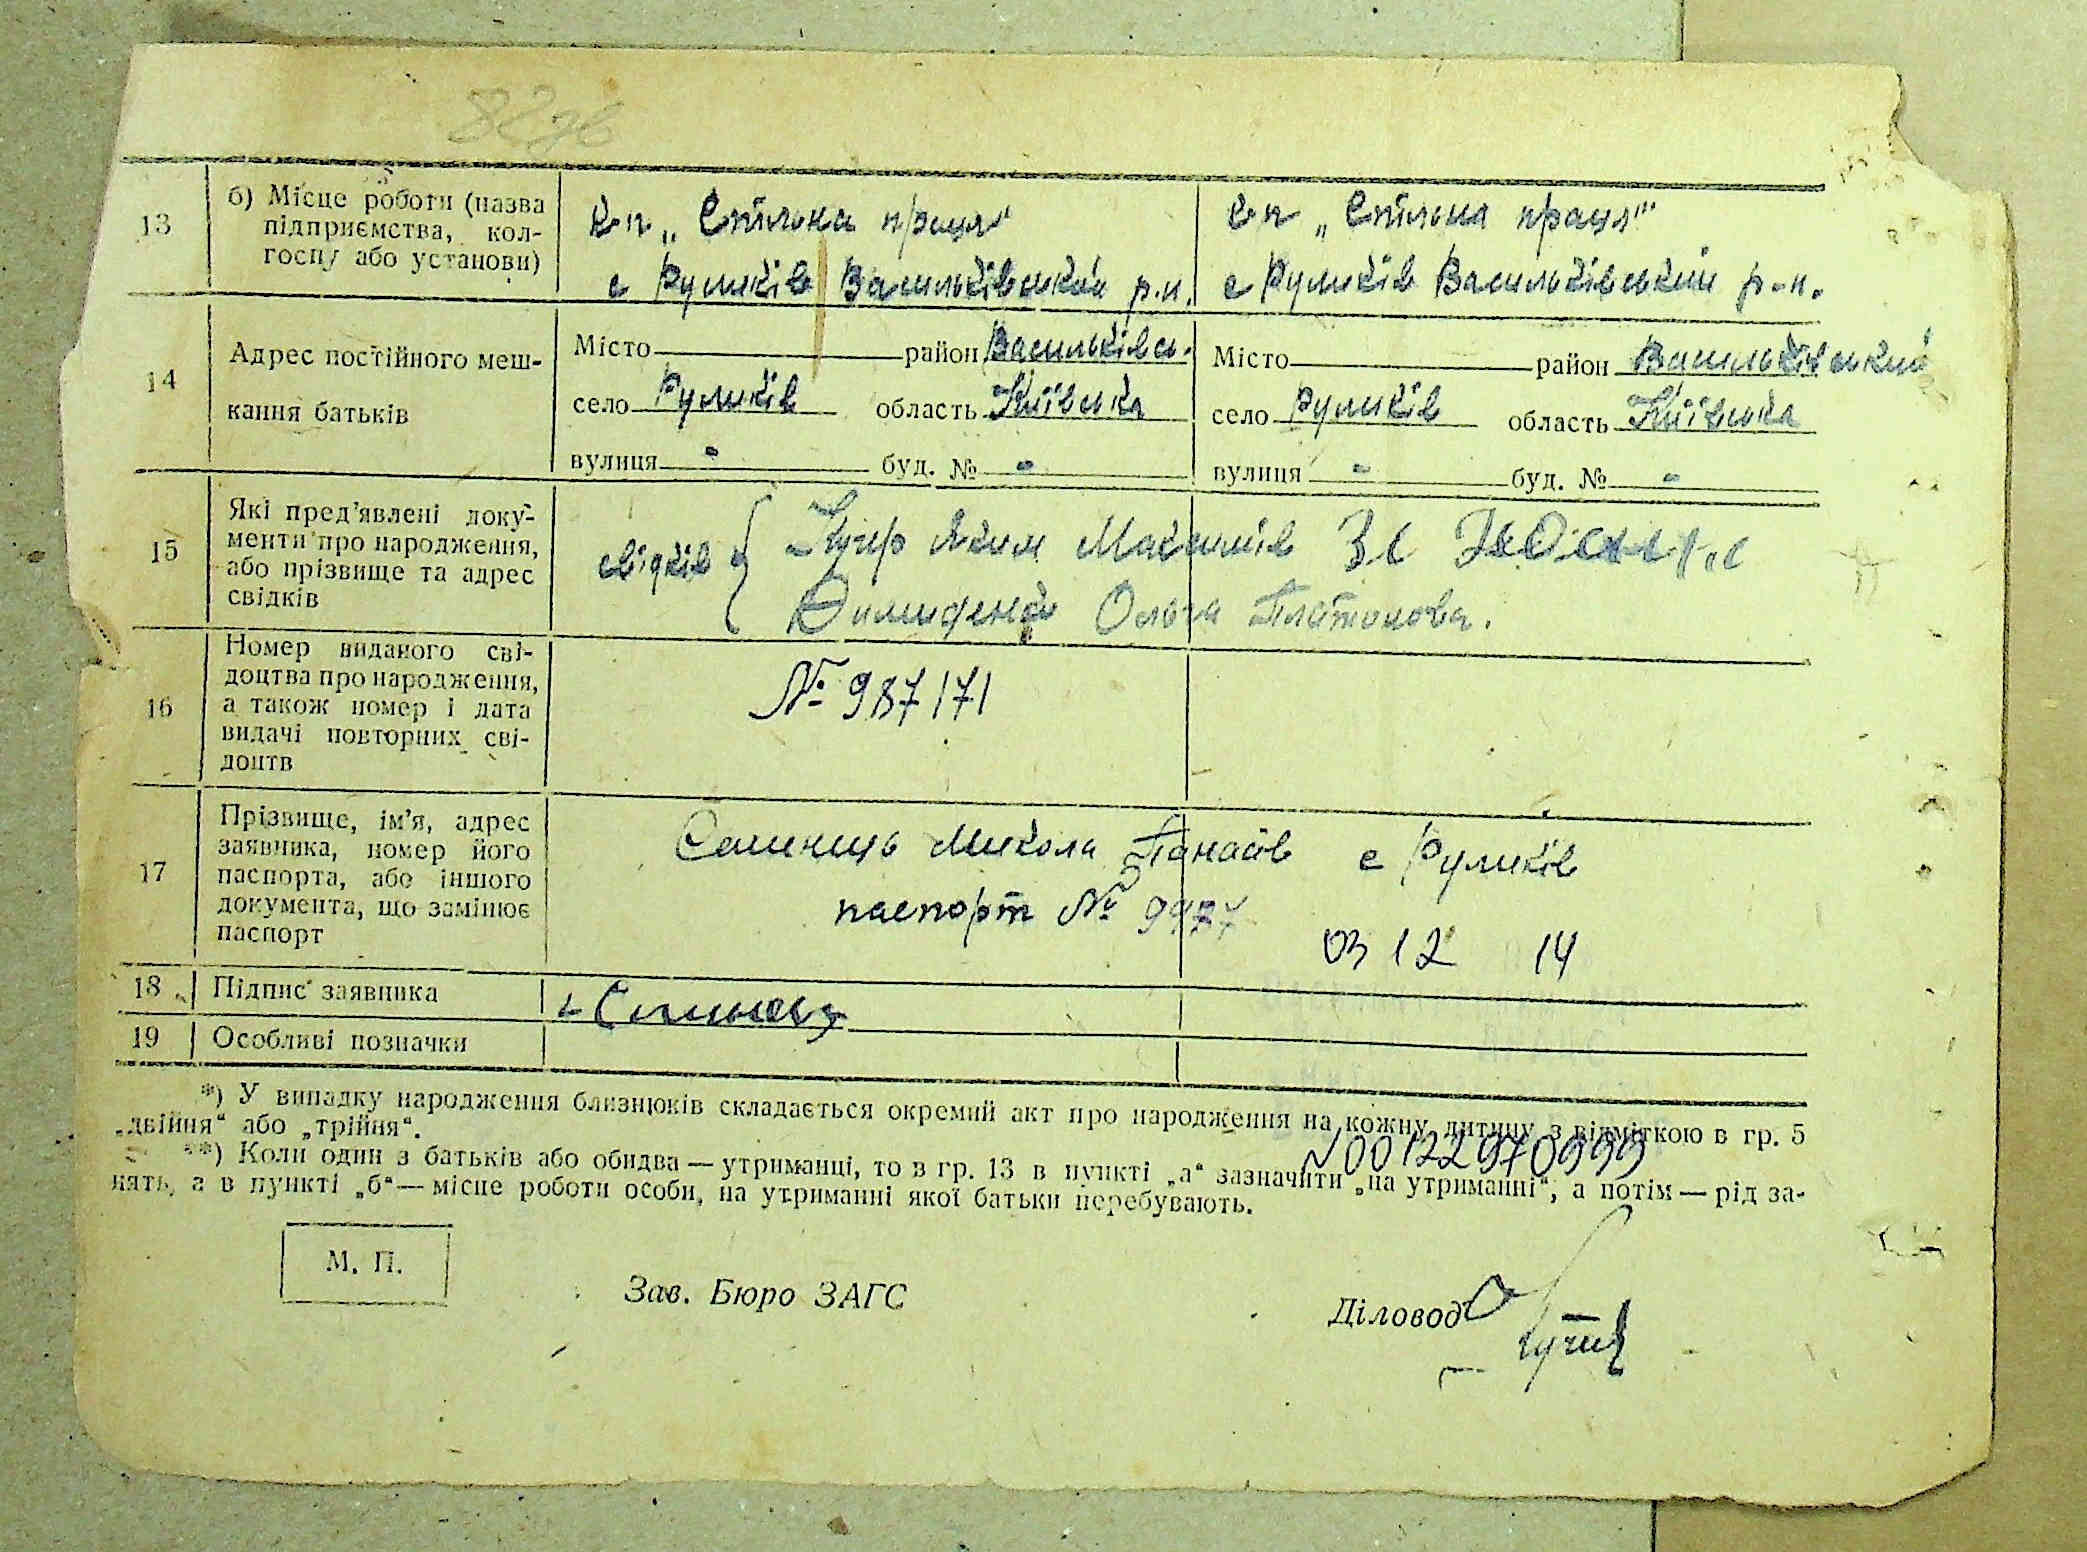 13
б) Місце роботи (назва
підприємства, кол-
госпу або установи)
„Спільна праця"
с Руликів Васильківський р.н.
„Спільна праця"
с Руликів Васильківський р-н.
14
Адрес постійного меш-
кання батьків
Місто район Васильківсь.
село Руликів область Київська
вулиця - буд. № -
Місто район Васильківський
село Руликів область Київська
вулиця - буд. № -
15
Які пред'явлені доку-
менти про народження,
або прізвище та адрес
свідків
свідків
Яким Максимів
Ольга Платонова.
16
Номер виданого сві-
доцтва про народження,
а також номер і дата
видачі повторних сві-
доцтв
№ 987171
17
Прізвище, ім'я, адрес
заявника, номер його
паспорта, або іншого
документа, що замінює
паспорт
Микола Панасів с Руликів
паспорт №
03 12 14
18 Підпис заявника
19 Особливі позначки
*) У випадку народження близнюків складається окремий акт про народження на кожну дитину з відміткою в гр. 5
„двійня" або „трійня".
**) Коли один з батьків або обидва — утриманці, то в гр. 13 в пункті „а" зазначити „на утриманні", а потім — рід за-
нять, а в пункті „б" — місце роботи особи, на утриманні якої батьки перебувають.
N00122970999
М. П.
Зав. Бюро ЗАГС
Діловод